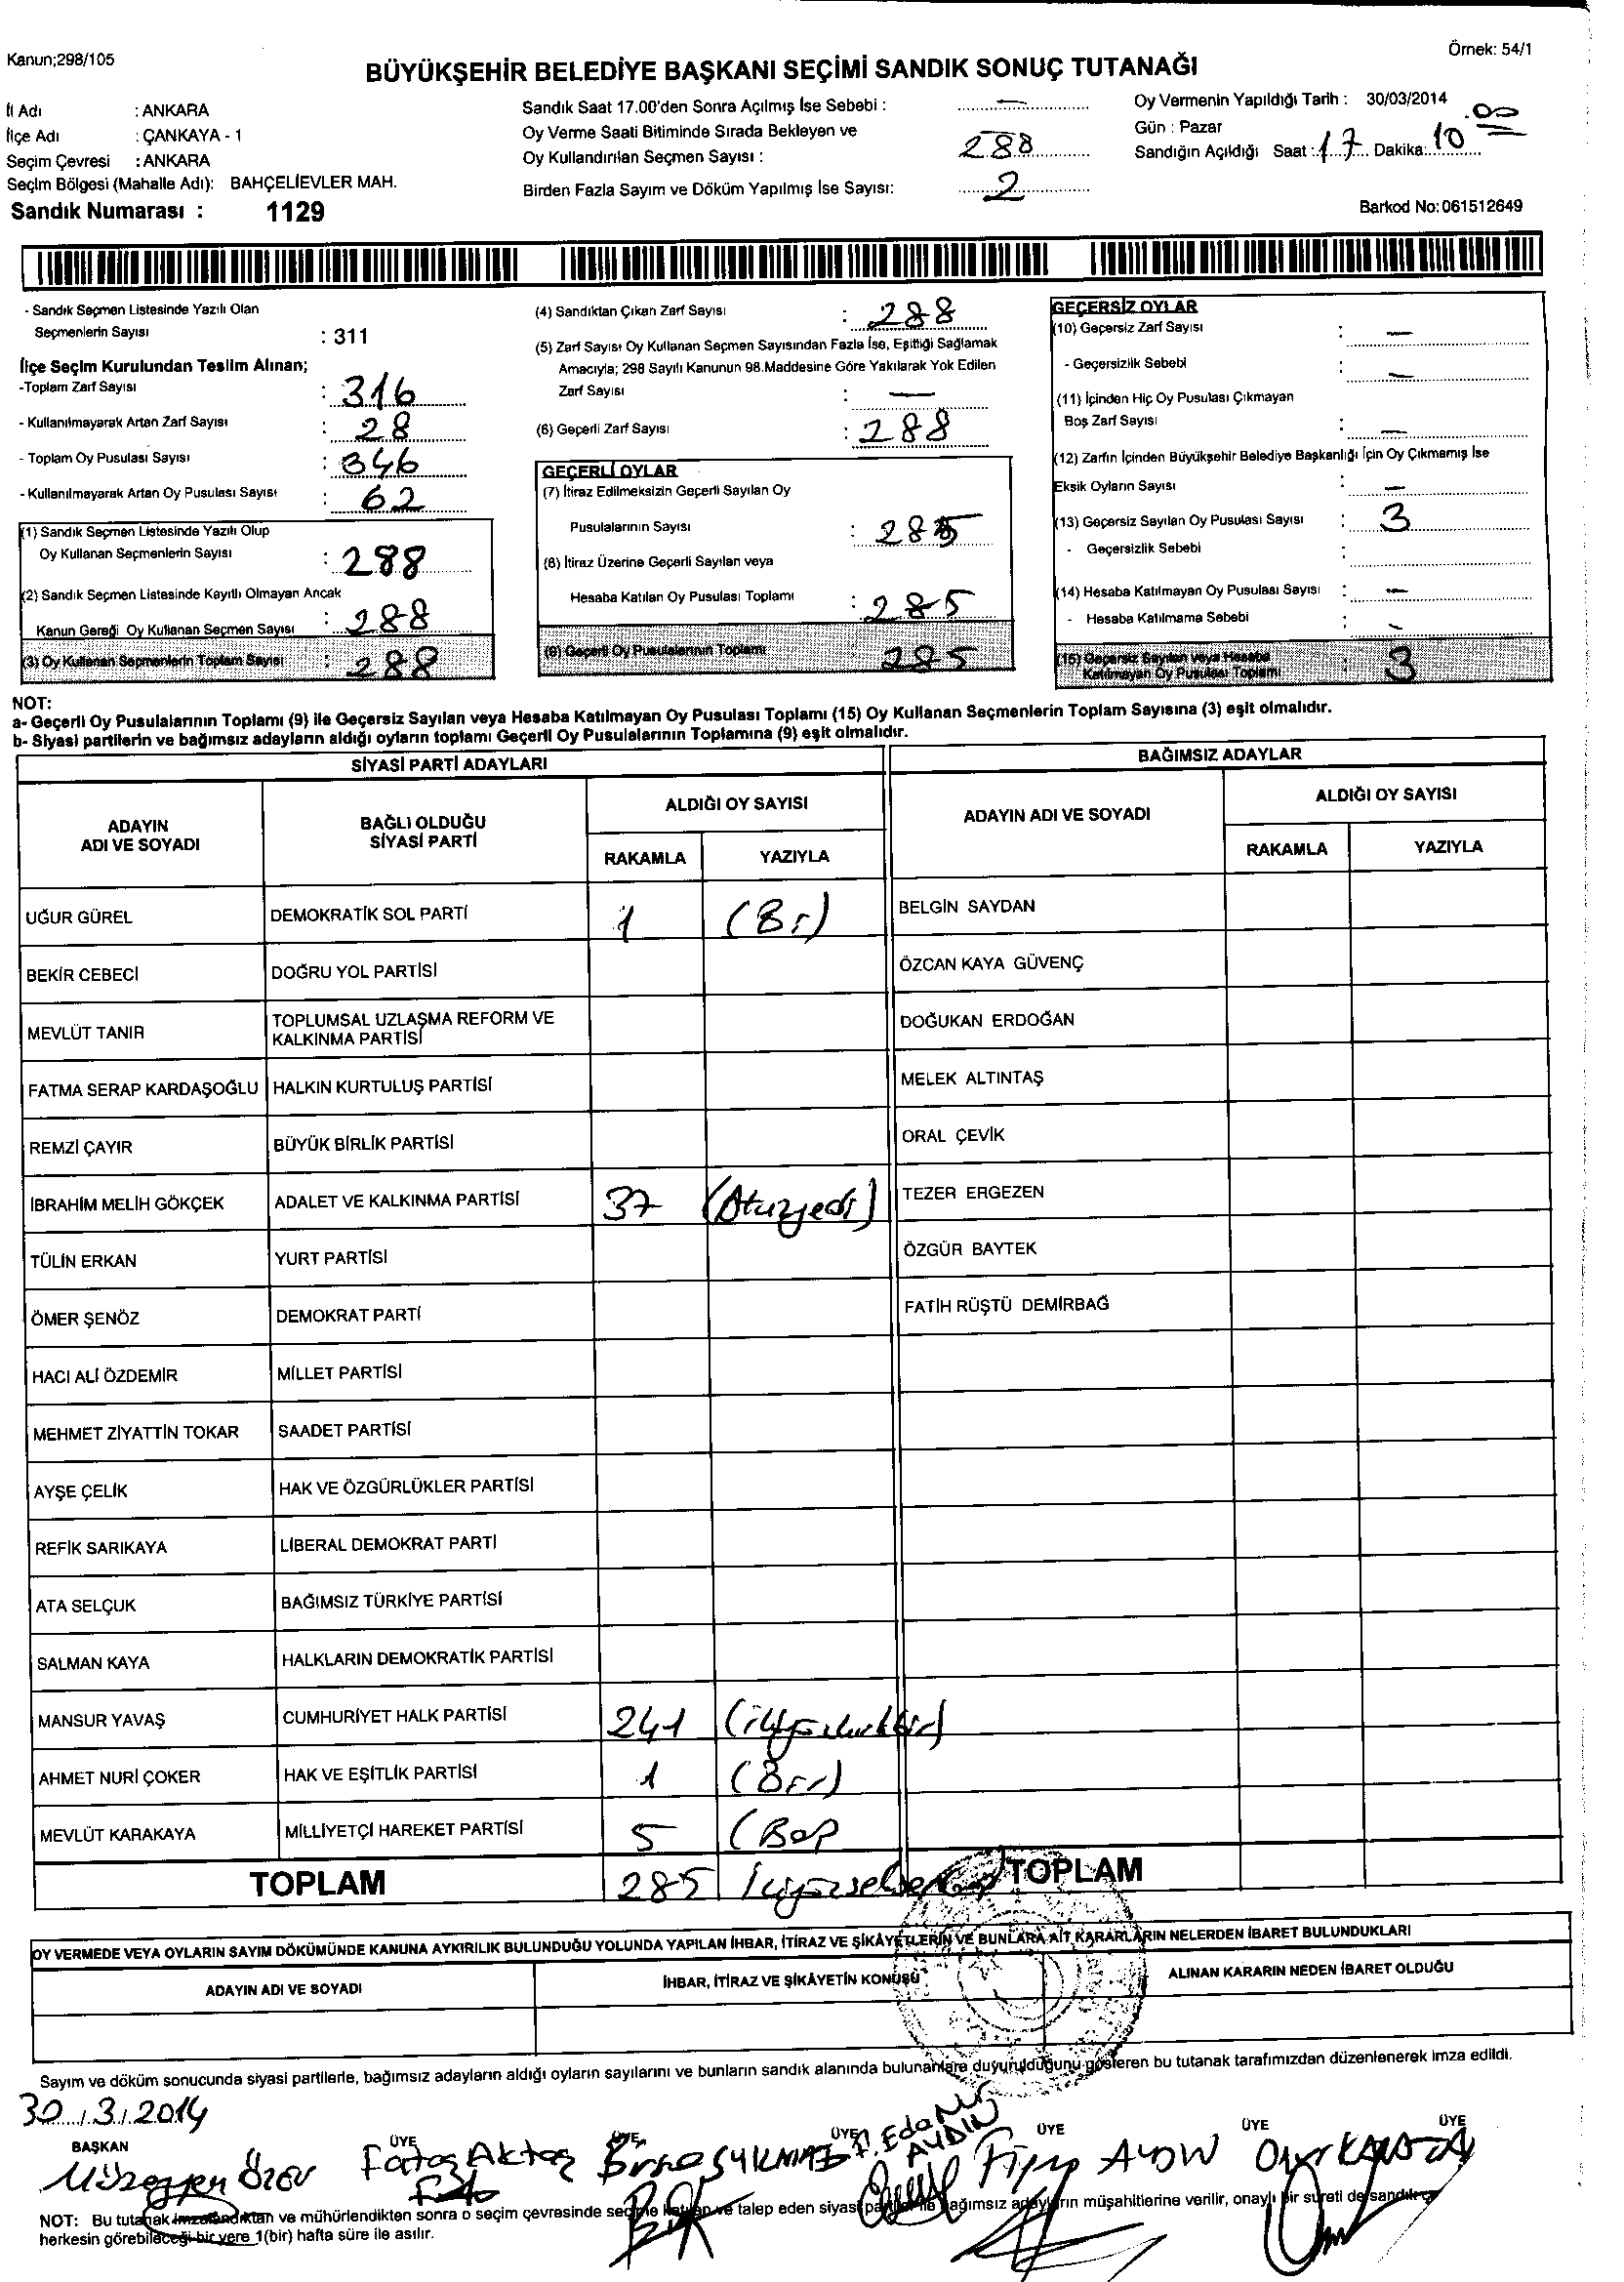 Kanun;298/105
Örnek: 54/1
BÜYÜKŞEHİR BELEDİYE BAŞKANI SEÇİMİ SANDIK SONUÇ TUTANAĞI
İl Adı : ANKARA
İlçe Adı : ÇANKAYA - 1
Seçim Çevresi : ANKARA
Seçim Bölgesi (Mahalle Adı): BAHÇELİEVLER MAH.
Sandık Numarası : 1129
Sandık Saat 17.00'den Sonra Açılmış İse Sebebi : —
Oy Verme Saati Bitiminde Sırada Bekleyen ve
Oy Kullandırılan Seçmen Sayısı : 288
Birden Fazla Sayım ve Döküm Yapılmış İse Sayısı: 2
Oy Vermenin Yapıldığı Tarih : 30/03/2014
Gün : Pazar
Sandığın Açıldığı Saat : 17 Dakika: 10
Barkod No: 061512649
- Sandık Seçmen Listesinde Yazılı Olan
Seçmenlerin Sayısı : 311
İlçe Seçim Kurulundan Teslim Alınan;
-Toplam Zarf Sayısı : 316
- Kullanılmayarak Artan Zarf Sayısı : 28
- Toplam Oy Pusulası Sayısı : 346
- Kullanılmayarak Artan Oy Pusulası Sayısı : 62
(1) Sandık Seçmen Listesinde Yazılı Olup
Oy Kullanan Seçmenlerin Sayısı : 288
(2) Sandık Seçmen Listesinde Kayıtlı Olmayan Ancak
Kanun Gereği Oy Kullanan Seçmen Sayısı : 288
(3) Oy Kullanan Seçmenlerin Toplam Sayısı : 288
(4) Sandıktan Çıkan Zarf Sayısı : 288
(5) Zarf Sayısı Oy Kullanan Seçmen Sayısından Fazla İse, Eşitliği Sağlamak
Amacıyla; 298 Sayılı Kanunun 98.Maddesine Göre Yakılarak Yok Edilen
Zarf Sayısı : —
(6) Geçerli Zarf Sayısı : 288
GEÇERLİ OYLAR
(7) İtiraz Edilmeksizin Geçerli Sayılan Oy
Pusulalarının Sayısı : 285
(8) İtiraz Üzerine Geçerli Sayılan veya
Hesaba Katılan Oy Pusulası Toplamı : 285
(9) Geçerli Oy Pusulalarının Toplamı 285
GEÇERSİZ OYLAR
(10) Geçersiz Zarf Sayısı : —
- Geçersizlik Sebebi : —
(11) İçinden Hiç Oy Pusulası Çıkmayan
Boş Zarf Sayısı : —
(12) Zarfın İçinden Büyükşehir Belediye Başkanlığı İçin Oy Çıkmamış İse
Eksik Oyların Sayısı : —
(13) Geçersiz Sayılan Oy Pusulası Sayısı : 3
- Geçersizlik Sebebi :
(14) Hesaba Katılmayan Oy Pusulası Sayısı : —
- Hesaba Katılmama Sebebi : —
(15) Geçersiz Sayılan veya Hesaba
Katılmayan Oy Pusulası Toplamı : 3
NOT:
a- Geçerli Oy Pusulalarının Toplamı (9) ile Geçersiz Sayılan veya Hesaba Katılmayan Oy Pusulası Toplamı (15) Oy Kullanan Seçmenlerin Toplam Sayısına (3) eşit olmalıdır.
b- Siyasi partilerin ve bağımsız adayların aldığı oyların toplamı Geçerli Oy Pusulalarının Toplamına (9) eşit olmalıdır.
SİYASİ PARTİ ADAYLARI
ADAYIN ADI VE SOYADI BAĞLI OLDUĞU SİYASİ PARTİ ALDIĞI OY SAYISI
RAKAMLA YAZIYLA
UĞUR GÜREL DEMOKRATİK SOL PARTİ 1 (Bir)
BEKİR CEBECİ DOĞRU YOL PARTİSİ
MEVLÜT TANIR TOPLUMSAL UZLAŞMA REFORM VE KALKINMA PARTİSİ
FATMA SERAP KARDAŞOĞLU HALKIN KURTULUŞ PARTİSİ
REMZİ ÇAYIR BÜYÜK BİRLİK PARTİSİ
İBRAHİM MELİH GÖKÇEK ADALET VE KALKINMA PARTİSİ 37 (Otuzyedi)
TÜLİN ERKAN YURT PARTİSİ
ÖMER ŞENÖZ DEMOKRAT PARTİ
HACI ALİ ÖZDEMİR MİLLET PARTİSİ
MEHMET ZİYATTİN TOKAR SAADET PARTİSİ
AYŞE ÇELİK HAK VE ÖZGÜRLÜKLER PARTİSİ
REFİK SARIKAYA LİBERAL DEMOKRAT PARTİ
ATA SELÇUK BAĞIMSIZ TÜRKİYE PARTİSİ
SALMAN KAYA HALKLARIN DEMOKRATİK PARTİSİ
MANSUR YAVAŞ CUMHURİYET HALK PARTİSİ 241
AHMET NURİ ÇOKER HAK VE EŞİTLİK PARTİSİ 1 (Bir)
MEVLÜT KARAKAYA MİLLİYETÇİ HAREKET PARTİSİ 5 (Beş
TOPLAM 285
BAĞIMSIZ ADAYLAR
ADAYIN ADI VE SOYADI ALDIĞI OY SAYISI
RAKAMLA YAZIYLA
BELGİN SAYDAN
ÖZCAN KAYA GÜVENÇ
DOĞUKAN ERDOĞAN
MELEK ALTINTAŞ
ORAL ÇEVİK
TEZER ERGEZEN
ÖZGÜR BAYTEK
FATİH RÜŞTÜ DEMİRBAĞ
TOPLAM
OY VERMEDE VEYA OYLARIN SAYIM DÖKÜMÜNDE KANUNA AYKIRILIK BULUNDUĞU YOLUNDA YAPILAN İHBAR, İTİRAZ VE ŞİKÂYETLERİN VE BUNLARA AİT KARARLARIN NELERDEN İBARET BULUNDUKLARI
ADAYIN ADI VE SOYADI İHBAR, İTİRAZ VE ŞİKÂYETİN KONUSU ALINAN KARARIN NEDEN İBARET OLDUĞU
Sayım ve döküm sonucunda siyasi partilerle, bağımsız adayların aldığı oyların sayılarını ve bunların sandık alanında bulunanlara duyurulduğunu gösteren bu tutanak tarafımızdan düzenlenerek imza edildi.
30/3/2014
BAŞKAN ÜYE ÜYE ÜYE ÜYE ÜYE ÜYE
Müzeyyen Fatoş Aktaş Eda Nur AYDIN AYDIN
NOT: Bu tutanak imzalandıktan ve mühürlendikten sonra o seçim çevresinde seçime katılan ve talep eden siyasi partiler ile bağımsız adayların müşahitlerine verilir, onaylı bir sureti de sandık
herkesin görebileceği bir yere 1(bir) hafta süre ile asılır.